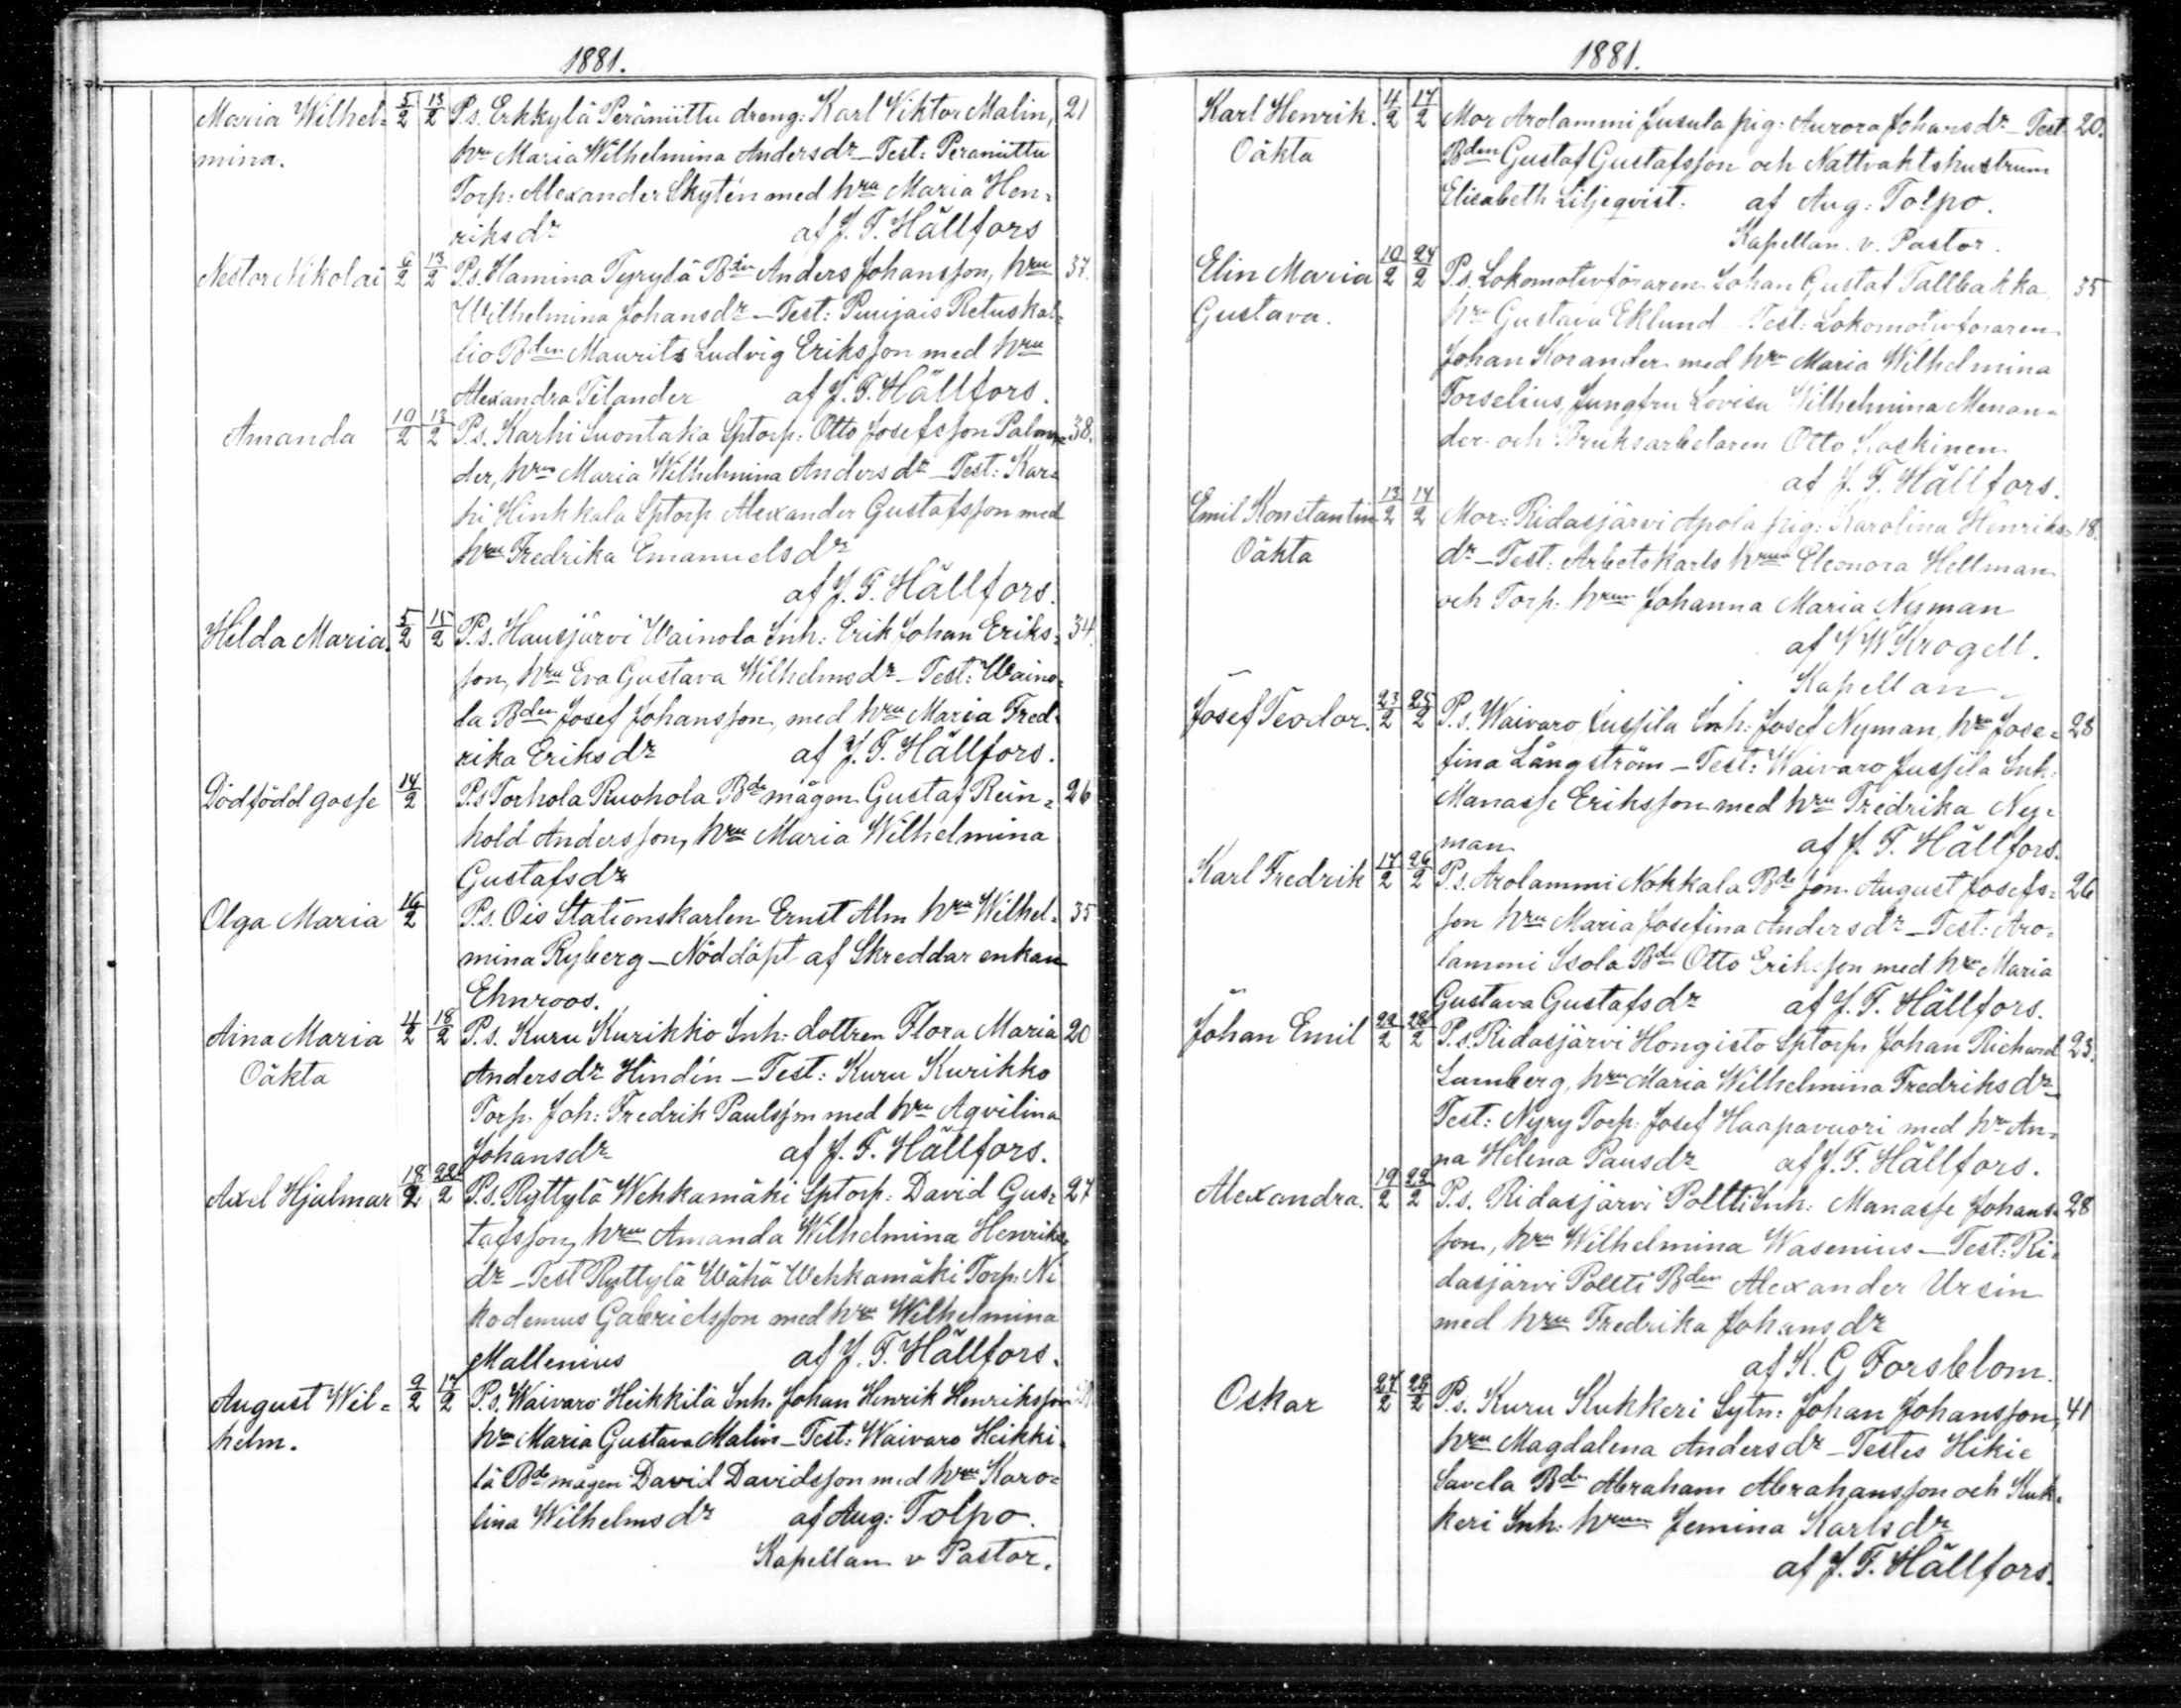 1881.
Maria Wilhel= 5/2 13/2 P.s. Erkkylä Peräniittu dreng: Karl Viktor Malin, 21
mina. hru Maria Wilhelmina Andersdr – Test: Peraniittu
Torp: Alexander Skytén med hru Maria Hen=
riksdr af J. F. Hällfors
Nestor Nikolai 6/2 13/2 P.s. Hamina Tyrylä Bdn Anders Johansson, hru 37.
Wilhelmina Johansdr – Test: Retuskal=
lio Bden Maurits Ludvig Eriksson med hru
Alexandra Tilander af J. F. Hällfors.
Amanda 10/2 13/2 P.s. Karhi Suontaka Sptorp: Otto Josefsson Palan= 38.
der, hru Maria Wilhelmina Andersdr – Test: Kar=
hi Hinkkala Sptorp Alexander Gustafsson med
hru Fredrika Emanuelsdr
af J. F. Hällfors.
Hilda Maria. 5/2 15/2 P.s. Hausjärvi Wainola Inh: Erik Johan Eriks= 34.
son, hru Eva Gustava Wilhelmsdr – Test: Waino=
la Bden Josef Johansson, med hru Maria Fred=
rika Eriksdr af J. F. Hällfors.
Dödfödd gosse 14/2 P.s Torhola Ruohola Bde mågen Gustaf Rein= 26
hold Andersson, hru Maria Wilhelmina
Gustafsdr
Olga Maria 16/2 P.s. Ois Stationskarlen Ernst Alm hru Wilhel= 35
mina Ryberg – Nöddöpt af Skreddar enkan
Ehnroos.
Aina Maria 4/2 18/2 P.s. Kuru Kurikko Inh: dottren Flora Maria 20
Oäkta Andersdr Hindin – Test: Kuru Kurikko
Torp. Joh: Fredrik Paulsson med hru Aqvilina
Johansdr af J. F. Hällfors.
Axel Hjalmar 18/2 22/2 P.s. Ryttylä Wehkamäki Sptorp: David Gus= 27
tafsson, hru Amanda Wilhelmina Henriks
dr – Test Ryttylä Wähä Wehkamäki Torp: Ni
kodemus Gabrielsson med hru Wilhelmina
Mallenius af J. F. Hällfors.
August Wil= 9/2 17/2 P.s. Waivaro Heikkilä Inh. Johan Henrik Henriksson
helm. hru Maria Gustava Malin – Test: Waivaro Heikki=
lä Bde mågen David Davidsson med hru Karo=
lina Wilhelmsdr af Aug: Tolpo.
Kapellan v Pastor.
1881.
Karl Henrik. 4/2 17/2 Mor Arolammi Jusula pig: Aurora Johansdr – Test 20.
Oäkta Bden Gustaf Gustafsson och Nattvaktshustrun
Elisabeth Liljeqvist. af Aug: Tolpo.
Kapellan. v. Pastor.
Elin Maria 10/2 24/2 P.s. Lokomotivföraren Johan Gustaf Tallbakka 35
Gustava. hru Gustava Eklund – Test: Lokomotivföraren
Johan Korander med hru Maria Wilhelmina
Torselius, Jungfru Lovisa Wilhelmina Menan=
der och Bruksarbetaren Otto Koskinen
af J. F. Hällfors.
Emil Konstantin 13/2 17/2 Mor: Ridasjärvi Apola pig: Karolina Henriks= 18.
Oäkta dr – Test: Arbetskarls hrun Eleonora Hellman
och Torp. hrun Johanna Maria Nyman
af N W Krogell.
Kapellan
Josef Teodor. 23/2 25/2 P.s. Waivaro Jussila Inh: Josef Nyman, hru Jose= 28
fina Långström – Test: Waivaro Jussila Inh:
Manasse Eriksson med hru Fredrika Ny=
man af J. F. Hällfors.
Karl Fredrik 17/2 26/2 P.s. Arolammi Nokkala Bde son August Josefs= 26
son hru Maria Josefina Andersdr – Test: Aro=
lammi Isola Bde Otto Eriksson med hru Maria
Gustava Gustafsdr af J. F. Hällfors.
Johan Emil 22/2 28/2 P.s. Ridasjärvi Hongisto Sptorp Johan Richard 23.
Lumberg, hru Maria Wilhelmina Fredriksdr –
Test: Nyry Torp. Josef Haapavuori med hru An=
na Helena Pausdr af J. F. Hällfors.
Alexandra. 19/2 22/2 P.s. Ridasjärvi Poltti Inh: Manasse Johans= 28
son, hru Wilhelmina Wasenius – Test: Ri=
dasjärvi Poltti Bden Alexander Ursin
med hru Fredrika Johansdr
af K. G Forsblom.
Oskar 27/2 28/2 P.s. Kuru Kukkeri Sytn: Johan Johansson, 41
hru Magdalena Andersdr – Testes Hikie
Savela Bdn Abraham Abrahansson och Kuk=
keri Inh: hrun Jemina Karlsdr
af J. F. Hällfors.